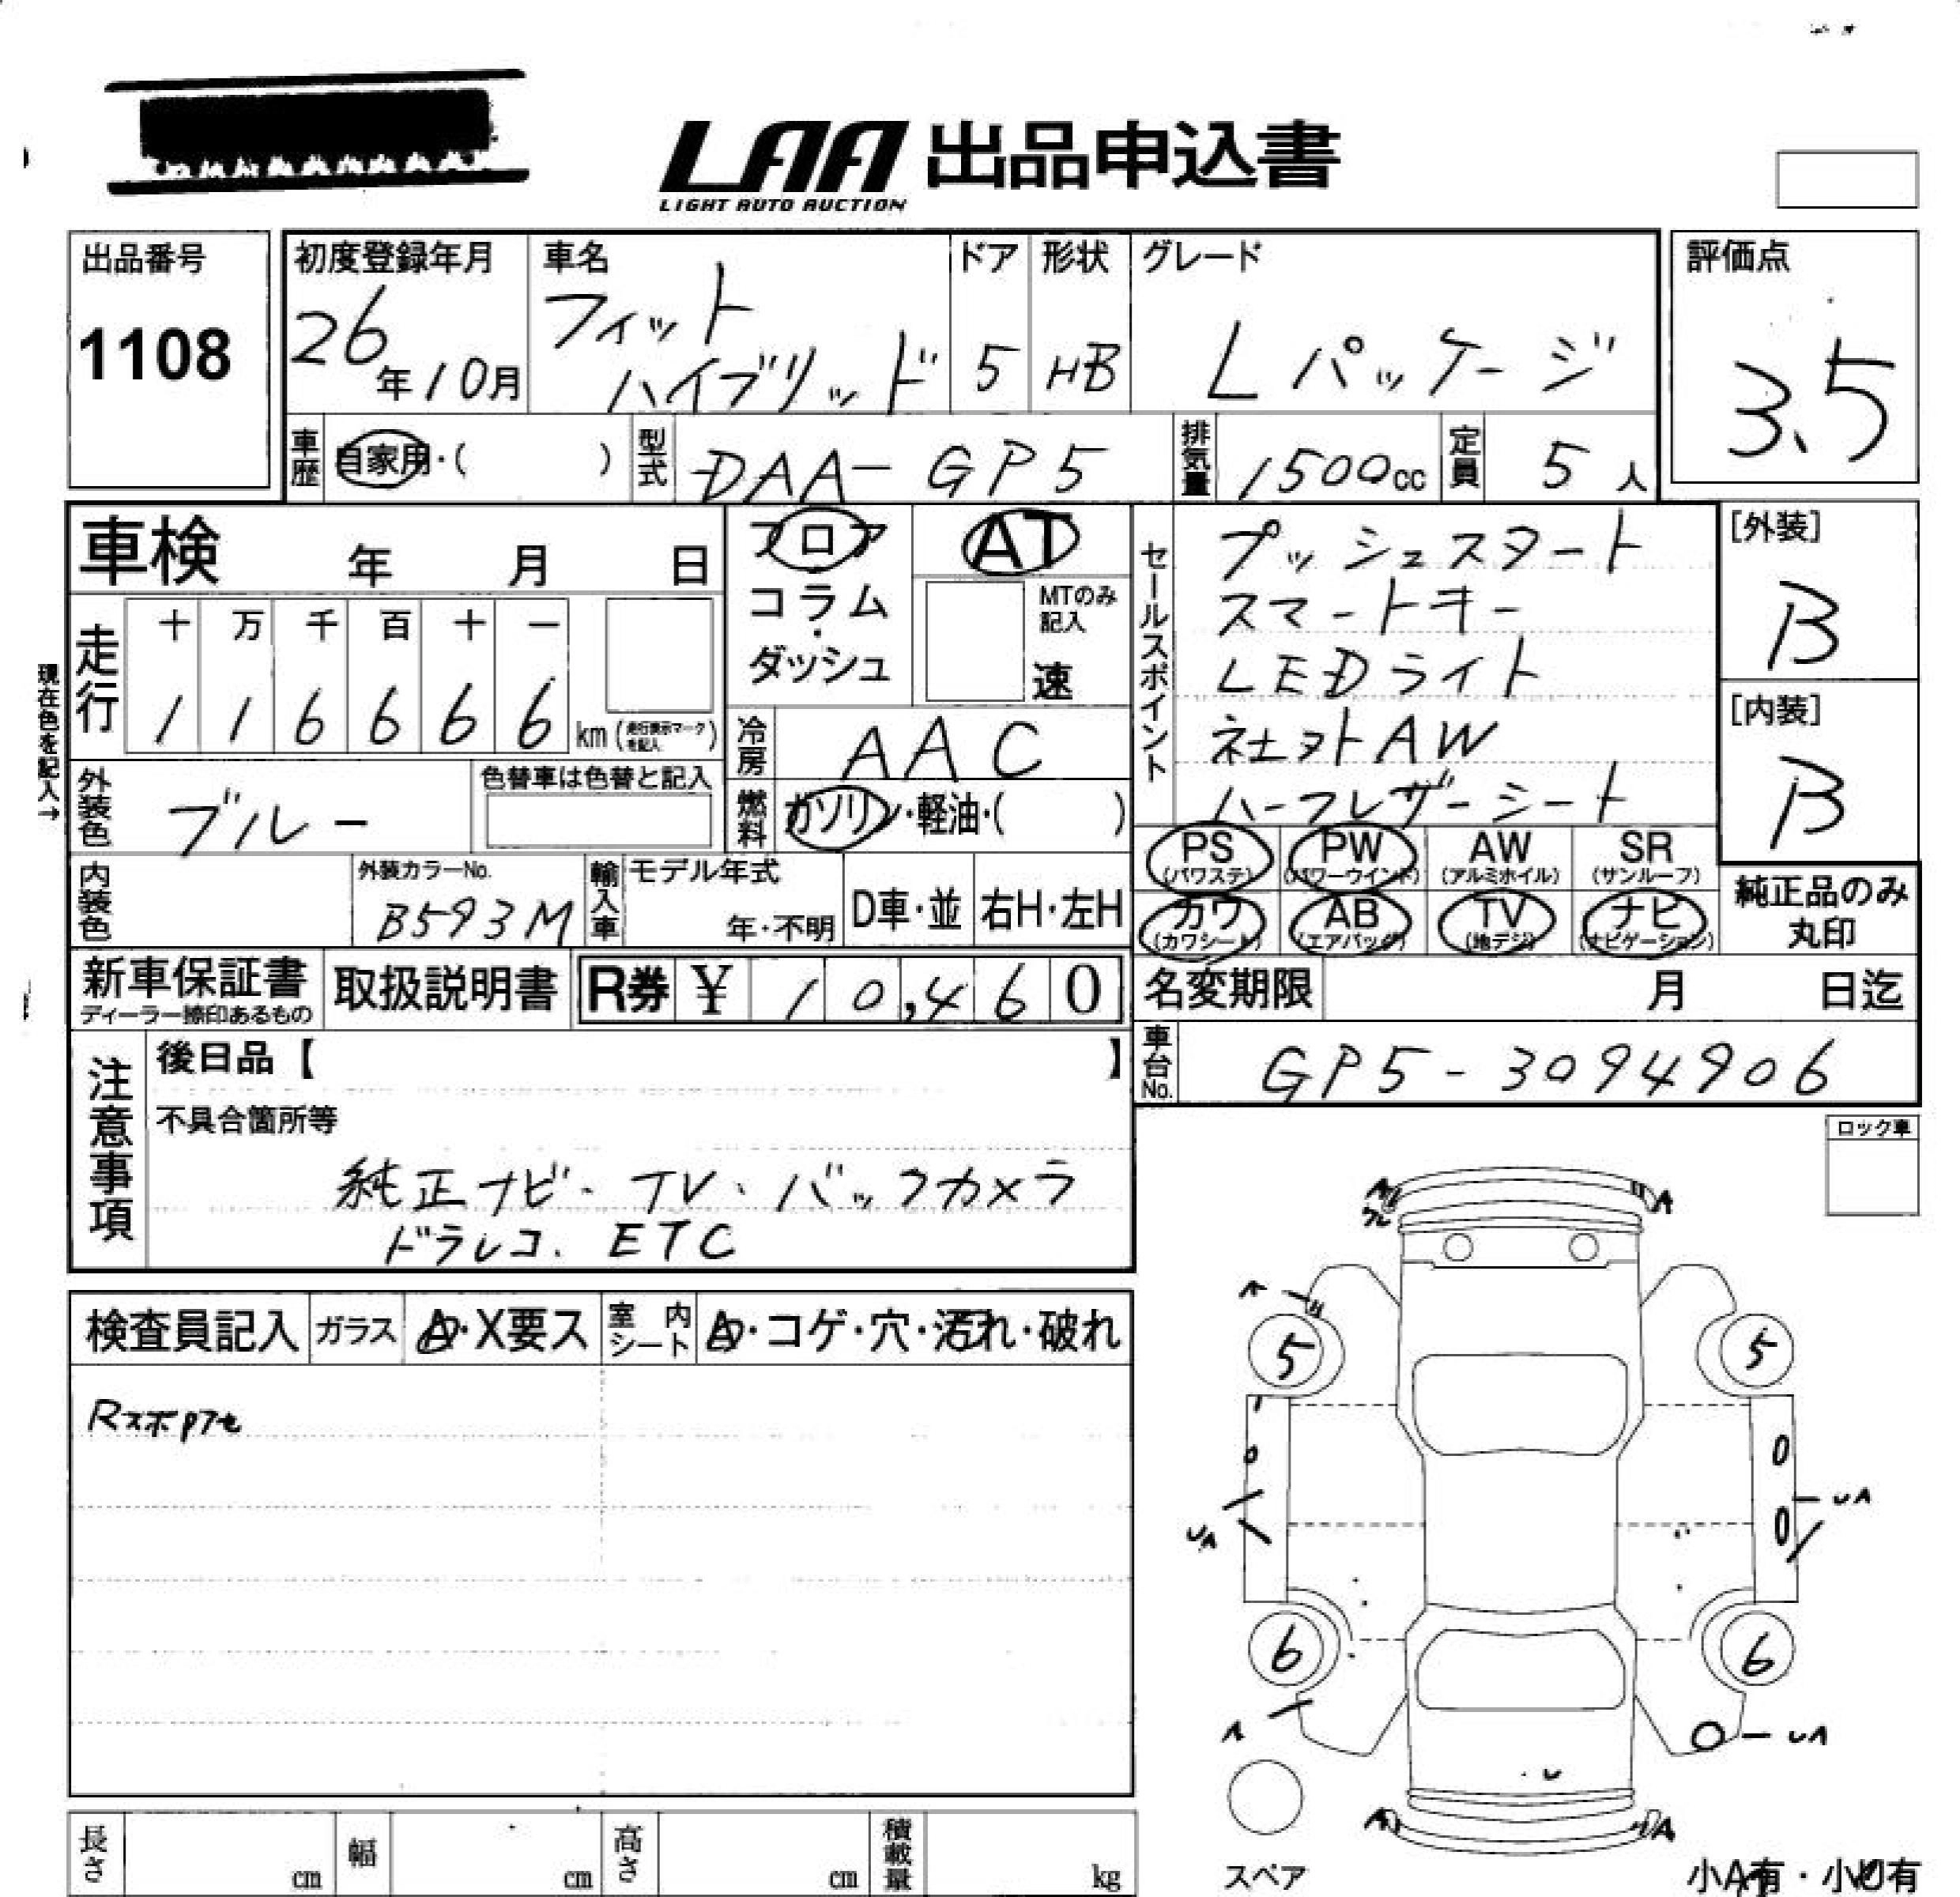 LAA 出品申込書
LIGHT AUTO AUCTION
出品番号
1108
初度登録年月
26年10月
車名
フィット
ハイブリッド
ドア
5
形状
HB
グレード
Lパッケージ
評価点
3.5
車歴 自家用・( )
型式 DAA-GP5
排気量 1500cc
定員 5人
車検 年 月 日
フロア
コラム
・
ダッシュ
AT
MTのみ
記入
速
走行
十 万 千 百 十 一
1 1 6 6 6 6 km (走行表示マークを記入)
現在色を記入→
冷房 AAC
燃料 ガソリン・軽油・( )
外装色 ブルー
色替車は色替と記入
内装色
外装カラーNo.
B593M
輸入車
モデル年式
年・不明
D車・並
右H・左H
セールスポイント
プッシュスタート
スマートキー
LEDライト
社外AW
ハーフレザーシート
[外装]
B
[内装]
B
PS (パワステ)
PW (パワーウインド)
AW (アルミホイル)
SR (サンルーフ)
カワ (カワシート)
AB (エアバッグ)
TV (地デジ)
ナビ (ナビゲーション)
純正品のみ
丸印
新車保証書
ディーラー捺印あるもの
取扱説明書
R券 ¥ 10,460
名変期限 月 日迄
車台No. GP5-3094906
注意事項
後日品【 】
不具合箇所等
純正ナビ・TV・バックカメラ
ドラレコ、ETC
ロック車
検査員記入
ガラス A・X要ス
室内シート A・コゲ・穴・汚れ・破れ
A
A
A
5
5
UA
UA
6
6
A
UA
A
A
スペア
小A有・小U有
長さ cm
幅 cm
高さ cm
積載量 kg